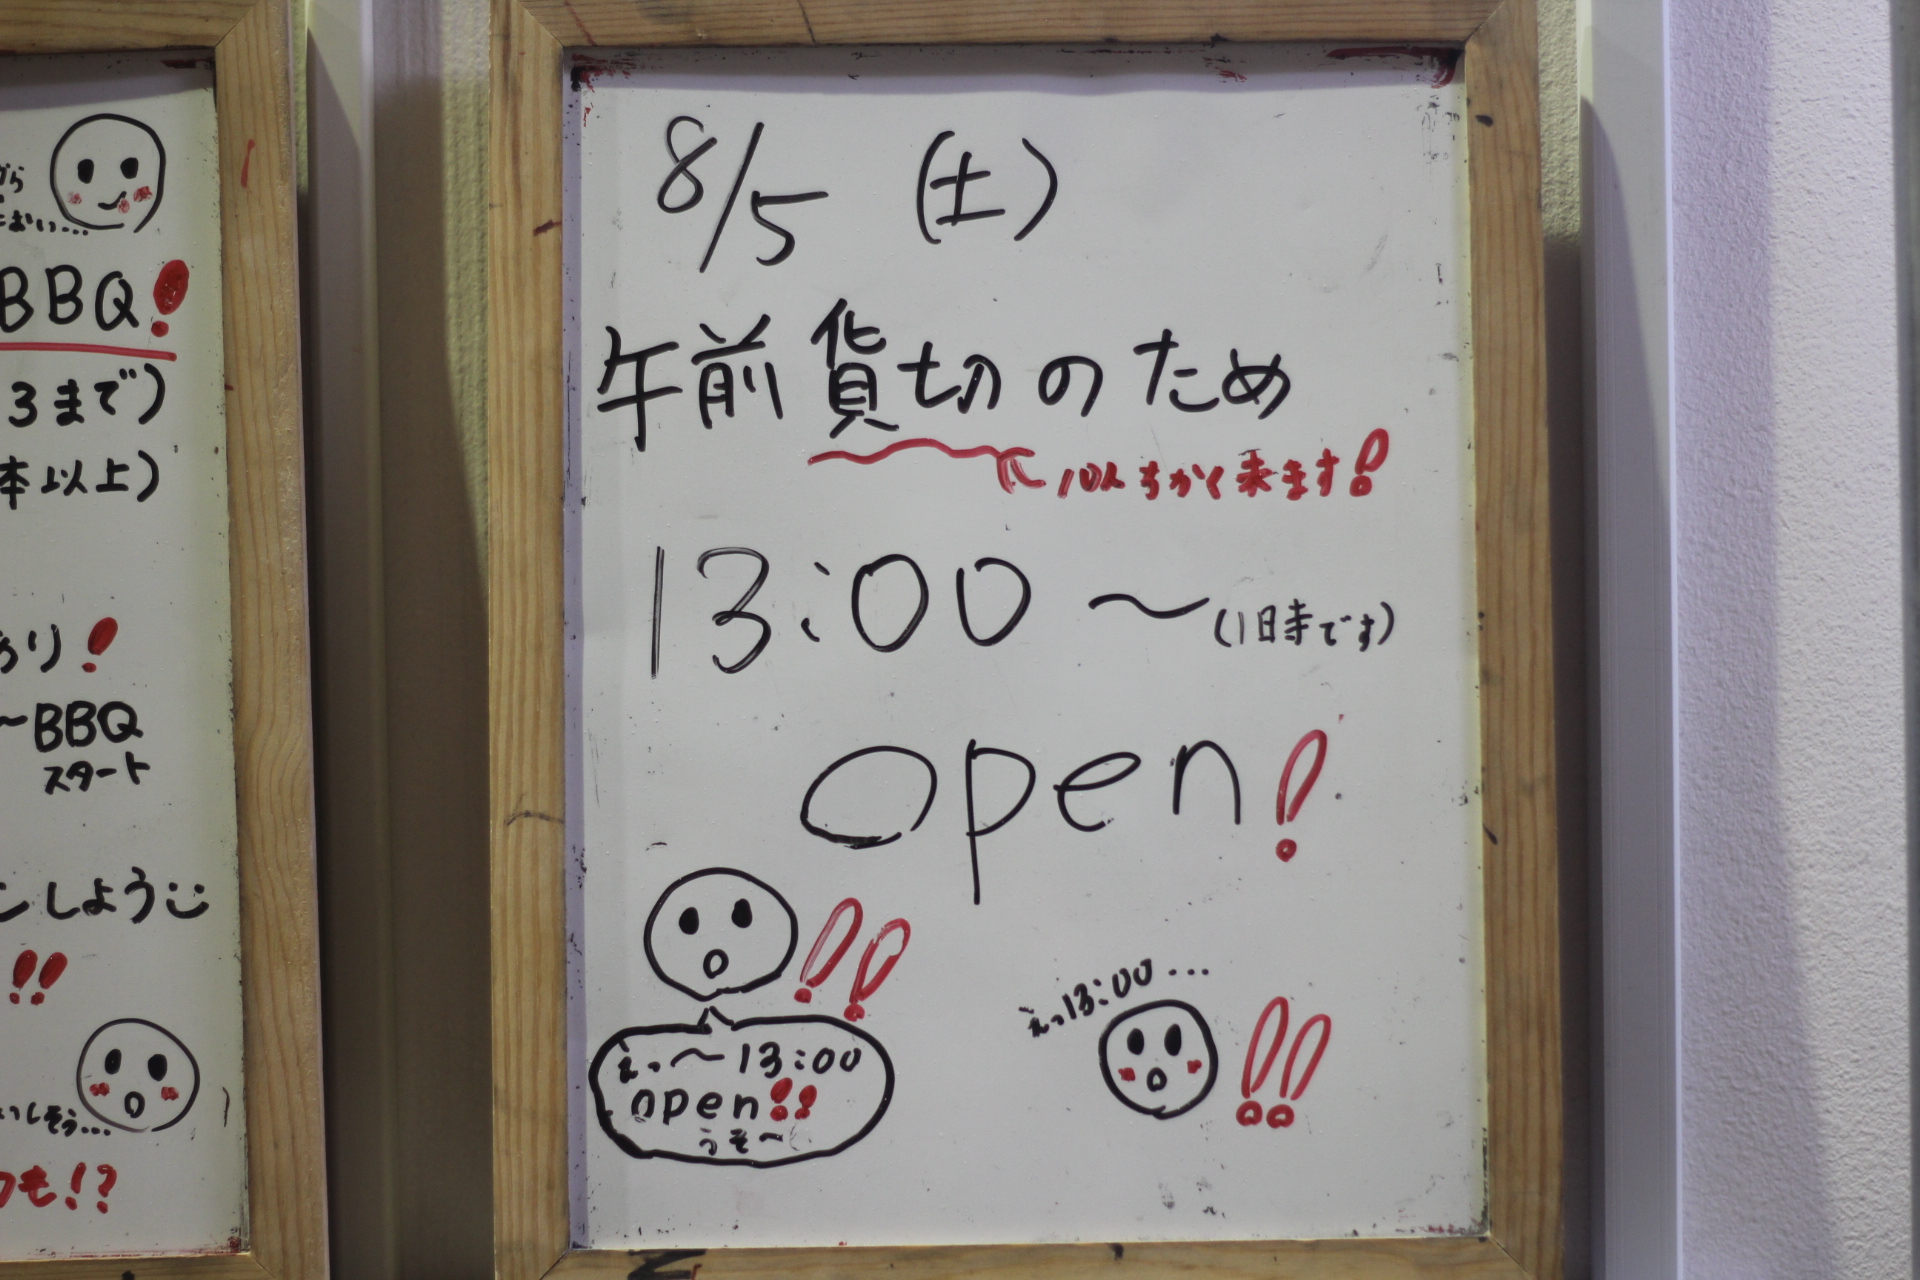 から
におい…
BBQ!
3まで)
本以上)
り!
〜BBQ
スタート
しよう
!!
いしそう…
も!?
8/5 (土)
午前貨切のため
10人ちかく来ます!
13:00 〜(1時です)
open!
!!
えっ〜13:00
open!!
うそ〜
えっ13:00…
!!